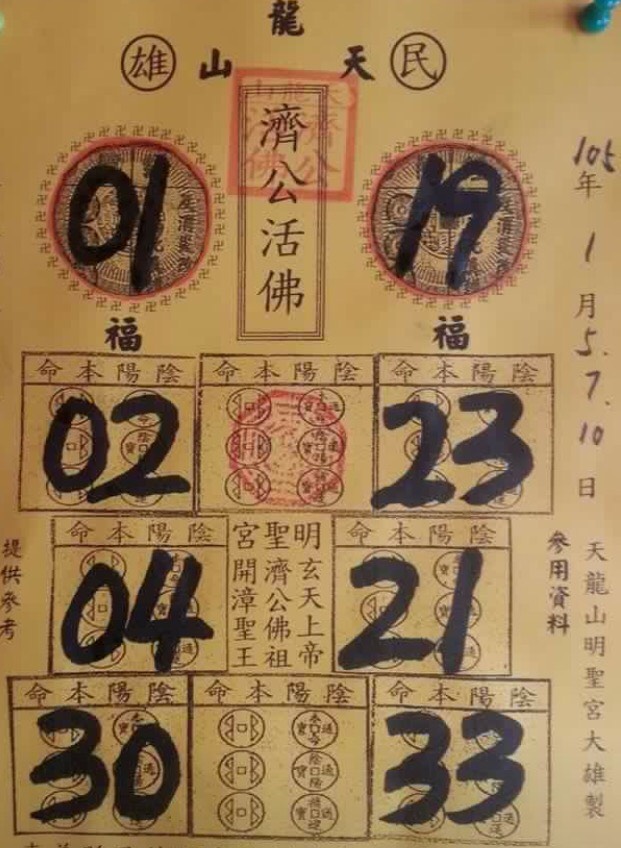 龍
雄 山 天 民
濟公活佛
01 19
福 福
105年1月5.7.10日
命本陽陰 命本陽陰 命本陽陰
02 23
命本陽陰 命本陽陰
04 21
明玄天上帝
聖濟公佛祖
宮開漳聖王
命本陽陰 命本陽陰 命本陽陰
30 33
參用資料
提供參考
天龍山明聖宮大雄製